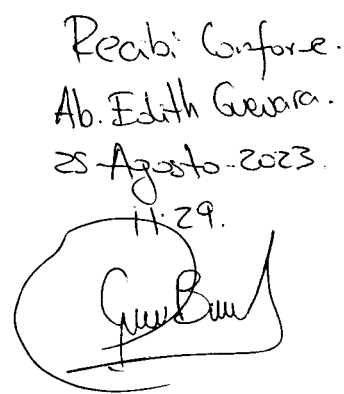 Recibi Conforme.
Ab. Edith Guevara.
25-Agosto-2023.
11:29.